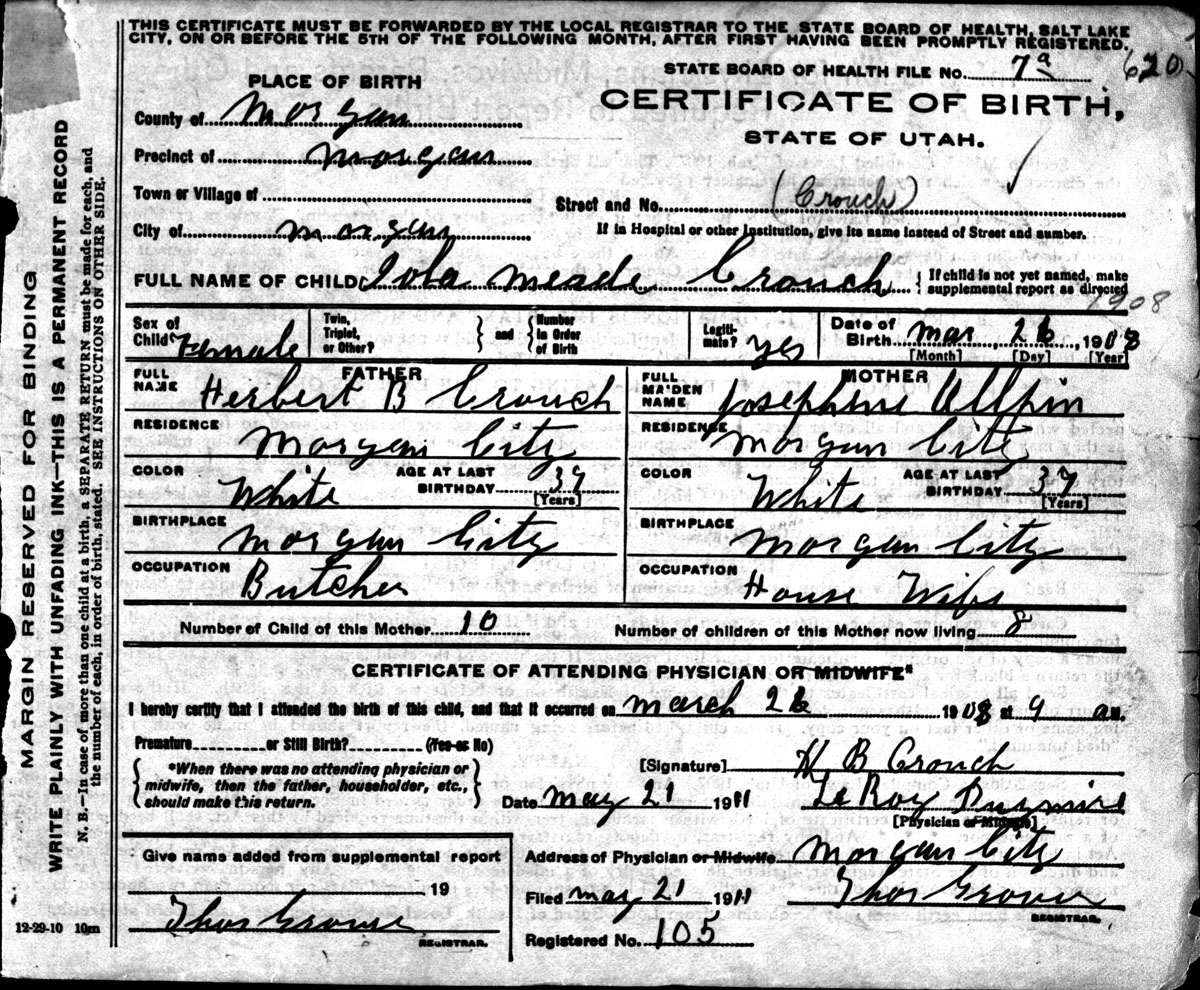 THIS CERTIFICATE MUST BE FORWARDED BY THE LOCAL REGISTRAR TO THE STATE BOARD OF HEALTH, SALT LAKE
CITY, ON OR BEFORE THE 5TH OF THE FOLLOWING MONTH, AFTER FIRST HAVING BEEN PROMPTLY REGISTERED.
STATE BOARD OF HEALTH FILE NO. 7a 620
PLACE OF BIRTH
CERTIFICATE OF BIRTH,
STATE OF UTAH.
County of Morgan
Precinct of Morgan
Town or Village of
Street and No. (Crouch)
City of Morgan
If in Hospital or other Institution, give its name instead of Street and number.
FULL NAME OF CHILD Iola Meade Crouch { If child is not yet named, make
supplemental report as directed
1908
Sex of Child Female
Twin, Triplet, or Other? } and { Number in Order of Birth
Legitimate? yes
Date of Birth Mar 26, 1908
[Month] [Day] [Year]
FATHER
FULL NAME Herbert B Crouch
MOTHER
FULL MAIDEN NAME Josephine Allpin
RESIDENCE Morgan City
RESIDENCE Morgan City
COLOR White AGE AT LAST BIRTHDAY 37 [Years]
COLOR White AGE AT LAST BIRTHDAY 37 [Years]
BIRTHPLACE Morgan City
BIRTHPLACE Morgan City
OCCUPATION Butcher
OCCUPATION House Wife
Number of Child of this Mother 10
Number of children of this Mother now living 8
CERTIFICATE OF ATTENDING PHYSICIAN OR MIDWIFE*
I hereby certify that I attended the birth of this child, and that it occurred on March 26 1908 at 9 am.
Premature or Still Birth? (Yes or No)
*When there was no attending physician or
midwife, then the father, householder, etc.,
should make this return.
[Signature] H B Crouch
Date May 21 1911 LeRoy
[Physician or Midwife]
Give name added from supplemental report
19
Thos Grover
REGISTRAR.
Address of Physician or Midwife Morgan City
Filed May 21 1911 Thos Grover
REGISTRAR.
Registered No. 105
12-29-10 10m
MARGIN RESERVED FOR BINDING
WRITE PLAINLY WITH UNFADING INK—THIS IS A PERMANENT RECORD
N. B.—In case of more than one child at a birth, a SEPARATE RETURN must be made for each, and
the number of each, in order of birth, stated. SEE INSTRUCTIONS ON OTHER SIDE.